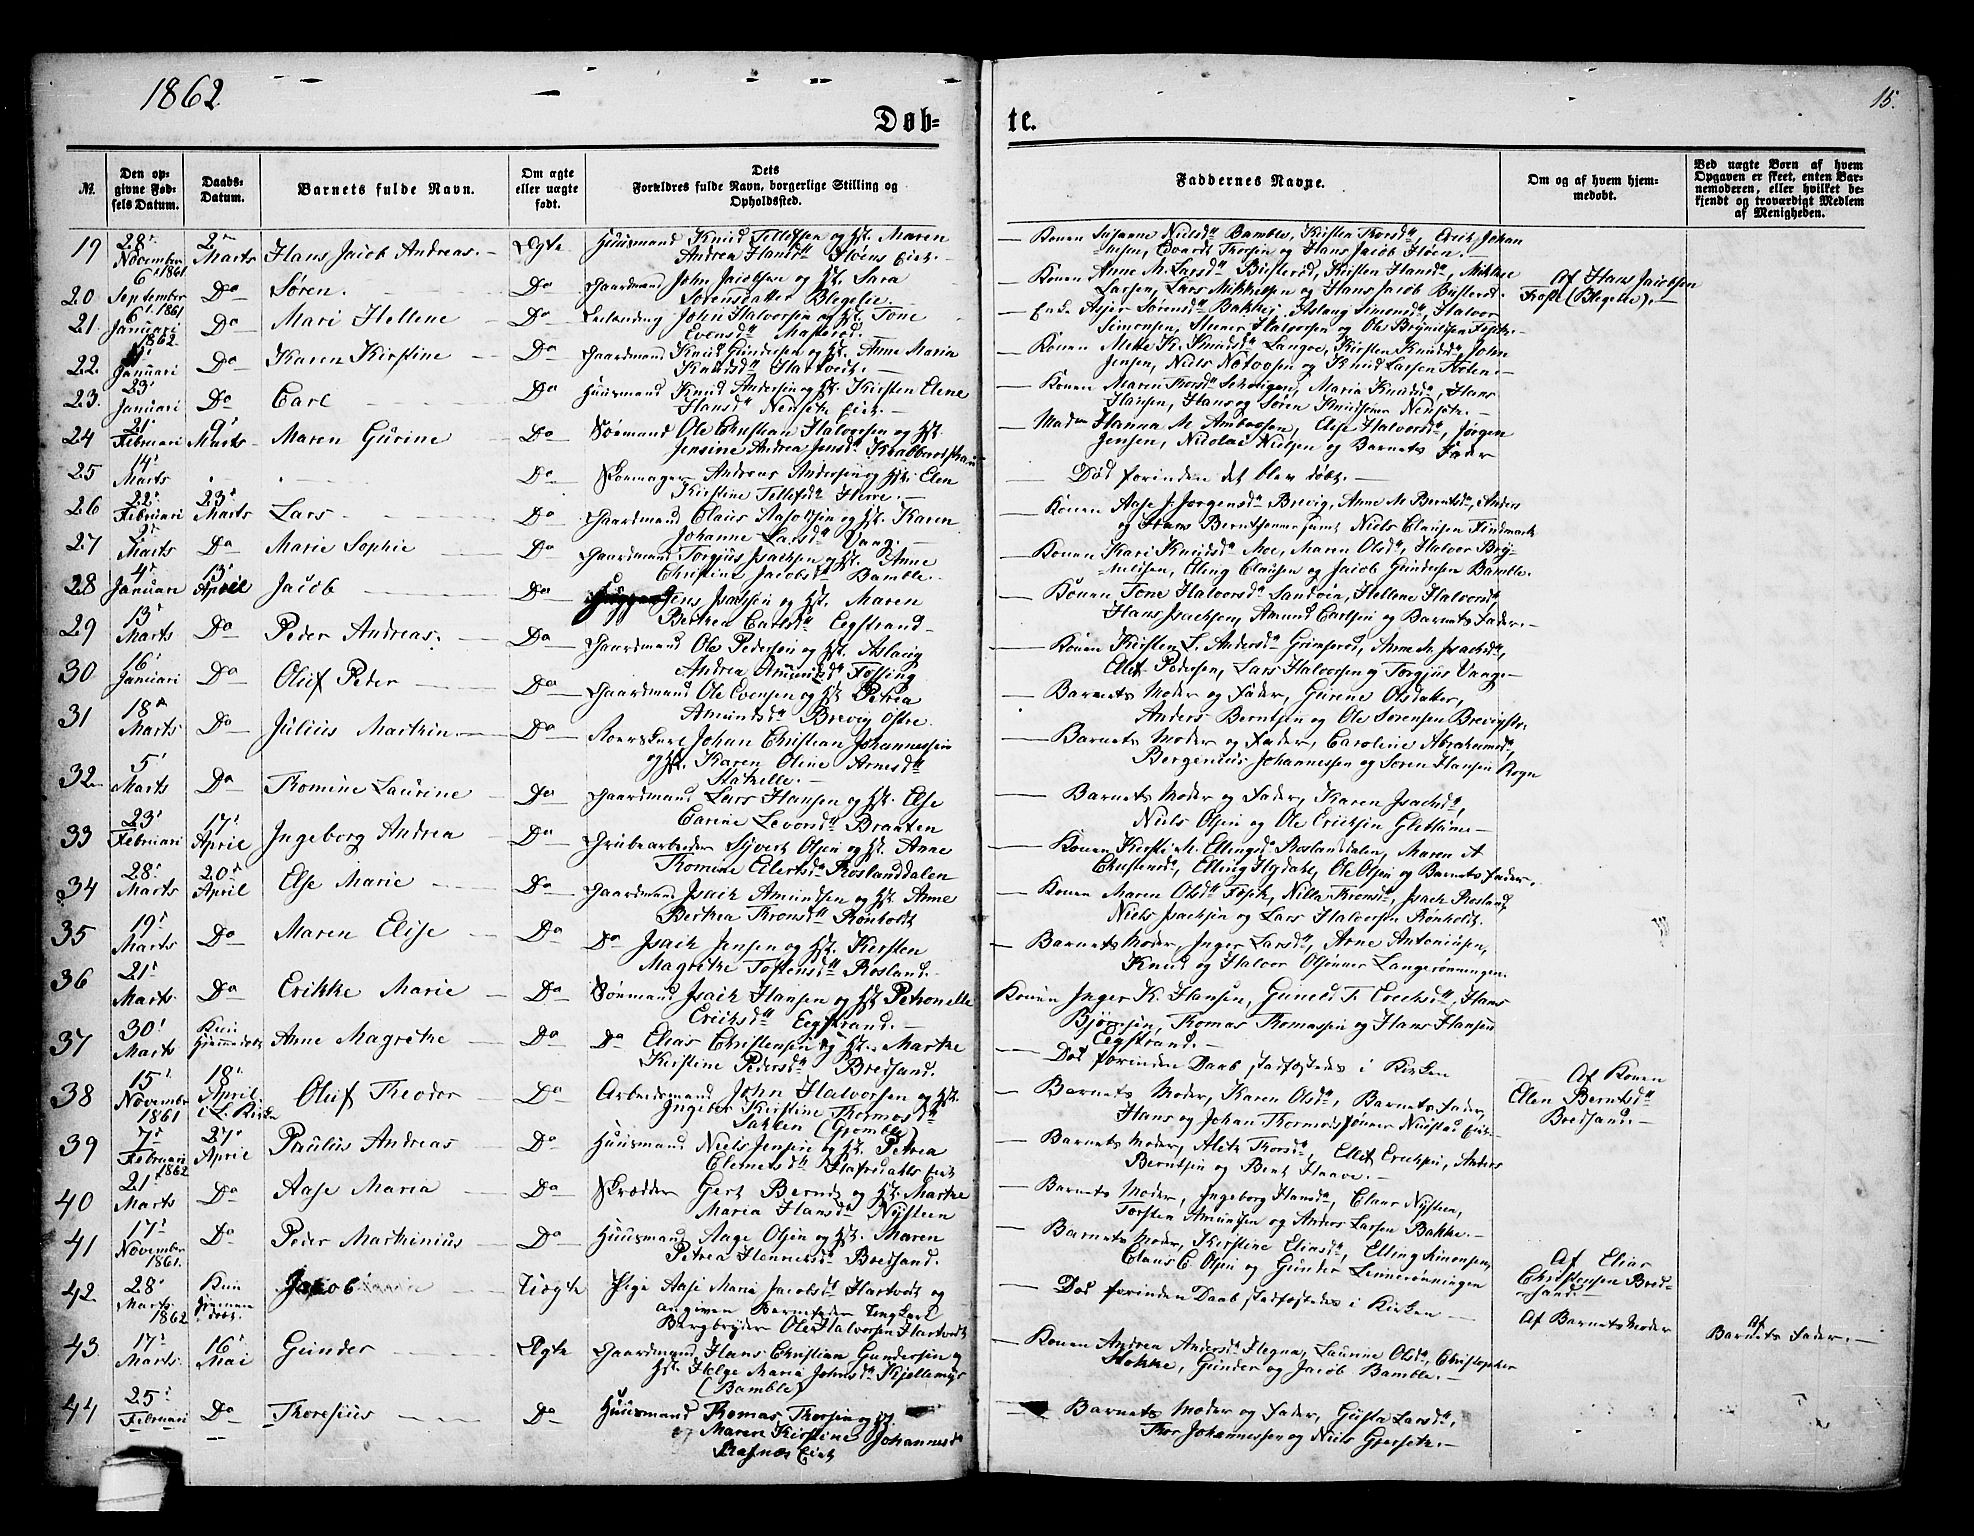 1862.
15.
Døb-
te.
№.
Den op-
givne Fød-
sels Datum.
Daabs-
Datum.
Barnets fulde Navn.
Om ægte
eller uægte
født.
Dets
Forældres fulde Navn, borgerlige Stilling og
Opholdssted.
Faddernes Navne.
Om og af hvem hjem-
medøbt.
Ved uægte Børn af hvem
Opgaven er skeet, enten Bar-
nemoderen, eller hvilket be-
kjendt og troværdigt Medlem
af Menigheden.
19 28' November 1861 2den Marts Hans Jacob Andreas. Ægte Huusmand Knud Tellefsen og Hst. Maren
Andrea Hansdtr
Konen Susanne Nielsdtr Bamble, Kirsten Thorsdtr, Erik Johan
nesen, Edvardt Thorsen og Hans Jacob
20 6' September 1861 Do Søren. Do Gaardmand John Jacobsen og Hst. Sara
Sørensdatter Blegelie.
Konen Anne M. Larsdtr Kirsten Hansdtr, Mikkel
Larsen, Lars Mikkelsen og Hans Jacob
Af Hans Jacobsen
(Blegelie).
21. 6' Januari 1862. Do Mari Hellene Do Leilænding John Halvorsen og Hst. Tone
Evensdtr
Enke Asjer Sørensdtr Bakke, Aslaug Simonsdtr, Halvor
Simonsen, Halvorsen og Ole Brynildsen
22. Januari Do Karen Kirstine Do Gaardmand Knud Gundersen og Hst. Anne Maria
Knudsdtr Hartvedt.
Konen Mette K. Knudsdtr Langøe, Kirsten Knudsdtr, John
Jensen, Niels og Knud Larsen
23. 23' Januari Do Carl Do Huusmand Knud Andersen og Hst. Kirsten Elene
Hansdtr
Konen Maren Thorsdtr Maria Knudsdtr, Hans
Hansen, Hans og Søren Knudsønner
24 21' Februari 9' Marts Maren Gurine Do Sømand Ole Christian Halvorsen og Hst.
Jensine Andrea Jensdtr Krabberødstrand
Madm Hanna M. Ambrosen, Else Halvorsdtr, Jørgen
Jensen, Nicolai Nielsen og Barnets Fader
25 14' Marts Do Skomager Andreas Andersen og Hst. Elen
Kirstine Tellefsdtr Herre.
Død forinden det blev døbt.
26 22' Februari 23' Marts Lars Do Gaardmand Claus Aasoldsen og Hst. Karen
Johanne Larsdtr Vang.
Konen Aase J. Jørgensdtr Brevig, Anne M. Berntsdtr, Anders
og Hans Berntsønner samt Niels Clausen Findmark
27 2' Marts Do Marie Sophie Do Gaardmand Torgjus Isachsen og Hst. Anne
Christine Jacobsdtr Bamble.
Konen Kari Knudsdtr Moe, Maren Olsdtr, Halvor Bry-
nildsen, Elling Clausen og Jacob Gundersen Bamble.
28 4' Januari 13' April Jacob Do Jens Isachsen og Hst. Maren
Berthea Carlsdtr Eegstrand
Konen Tone Halvorsdtr Sandvig, Hellene Halvorsdtr,
Hans Isachsen, Amund Carlsen og Barnets Fader.
29 13' Marts Do Peder Andreas. Do Gaardmand Ole Pedersen og Hst. Aslaug
Andrea Amundsdtr Fossing
Konen Kirsten L. Andersdtr Anne M. Isachsdtr,
Ellef Pedersen, Lars Halvorsen og Torgjus Vange
30 16' Januari Do Oluf Peder Do Gaardmand Ole Evensen og Hst. Petrea
Amundsdtr Brevig Østre.
Barnets Moder og Fader, Gurene Olsdatter,
Anders Berntsen og Ole Sørensen
31 18de Marts Do Julius Marthin. Do Johan Christian Johannessen
og Hst. Karen Oline Arnesdtr
Stathelle.
Barnets Moder og Fader, Caroline Abrahamsdtr,
Bergenius Johannessen og Søren Hansen Rogn
32 5' Marts Do Thomine Laurine Do Gaardmand Lars Hansen og Hst. Else
Carine Levorsdtr Braaten
Barnets Moder og Fader, Karen Isachsdtr,
Niels Olsen og Ole Eriksen
33 23' Februari 17' April Ingeborg Andrea Do Grubearbeider Sivert Olsen og Hst. Anne
Thomine Elertsdtr Roslanddalen
Konen Kirsti M. Ellingsdtr Roslanddalen, Maren A
Christensdtr, Elling Ole Olsen og Barnets Fader.
34 28' Marts 20de April Else Marie Do Gaardmand Isach Amundsen og Hst. Anne
Berthea Thronsdtr Rønholdt
Konen Maren Olsdtr Nille Thronsdtr, Isach Rosland,
Niels Isachsen og Lars Halvorsen Rønholdt.
35 19' Marts Do Maren Elise Do Do Isach Jensen og Hst. Kirsten
Magrethe Tostensdtr Rosland.
Barnets Moder, Inger Larsdtr, Arne Antoniusen,
Knud og Halvor Olsønner Langerønningen.
36 21' Marts. Do Erikke Marie Do Sømand Isach Hansen og Hst. Petronelle
Eriksdtr Eegstrand.
Konen Inger K. Hansen, Gunild T. Eriksdtr, Hans
Bjørnsen, Thomas Thomassen og Hans Hansen
Eegstrand.
37 30' Marts Kun Hjemmedøbt Anne Magrethe Do Do Elias Christensen og Hst. Marthe
Kirstine Pedersdtr Bredsand.
Død forinden Daab stadfæstedes i Kirken
Af Konen
Elen Berntsdtr
Bredsand.
38 15' November 1861 18' April i L. Kirke Oluf Theodor Do Arbeidsmand John Halvorsen og Hst.
Ingeber Kirstine Thormodsdtr
Barnets Moder, Karen Olsdtr, Barnets Fader,
Hans og Johan Thormodsønner
39 7' Februari 1862 27' April Paulus Andreas Do Huusmand Niels Jensen og Hst. Petrea
Clemetsdtr
Barnets Moder, Aleth Thorsdtr, Ellef Eriksen, Anders
Berntsen og Bent Haave.
40 21' Marts Do Aase Maria Do Skrædder Gert Berndt og Hst. Marthe
Maria Hansdtr Nysteen
Barnets Moder, Ingeborg Hansdtr, Claus Nysteen,
Torsten Amundsen og Anders Larsen Bakke.
41 17' November 1861. Do Peder Marthinius Do Huusmand Aage Olsen og Hst. Maren
Petrea Hannersdtr Bredsand.
Barnets Moder, Kirstine Eliasdtr, Elling Simonsen,
Claus C. Olsen og Gunder Linnerønningen
42. 28' Marts 1862 Kun hjemmedøbt. Jakob Uægte Pige Aase Maria Jacobsdtr Hartvedt og
angiven Barnefader Ungkarl
Bergbryder Ole Halvorsen Hartvedt
Død forinden Daab stadfæstedes i Kirken
Af Elias
Christensen Bred-
sand.
Af Barnets Moder
Af
Barnets Fader.
43. 17' Marts. 16' Mai Gunder Ægte Gaardmand Hans Christian Gundersen og
Hst. Helge Maria Johnsdtr
(Bamble)
Konen Andrea Andersdtr Hegna, Laurine Olsdtr, Christopher
Stokke, Gunder og Jacob Bamble.
44 25' Februari Do Thoresius Do Huusmand Thomas Thorsen og Hst.
Maren Kirstine Johannesdtr
Rafnæs Eiet
Barnets Moder og Fader, Gusta Larsdtr,
Thor Johannessen og Niels